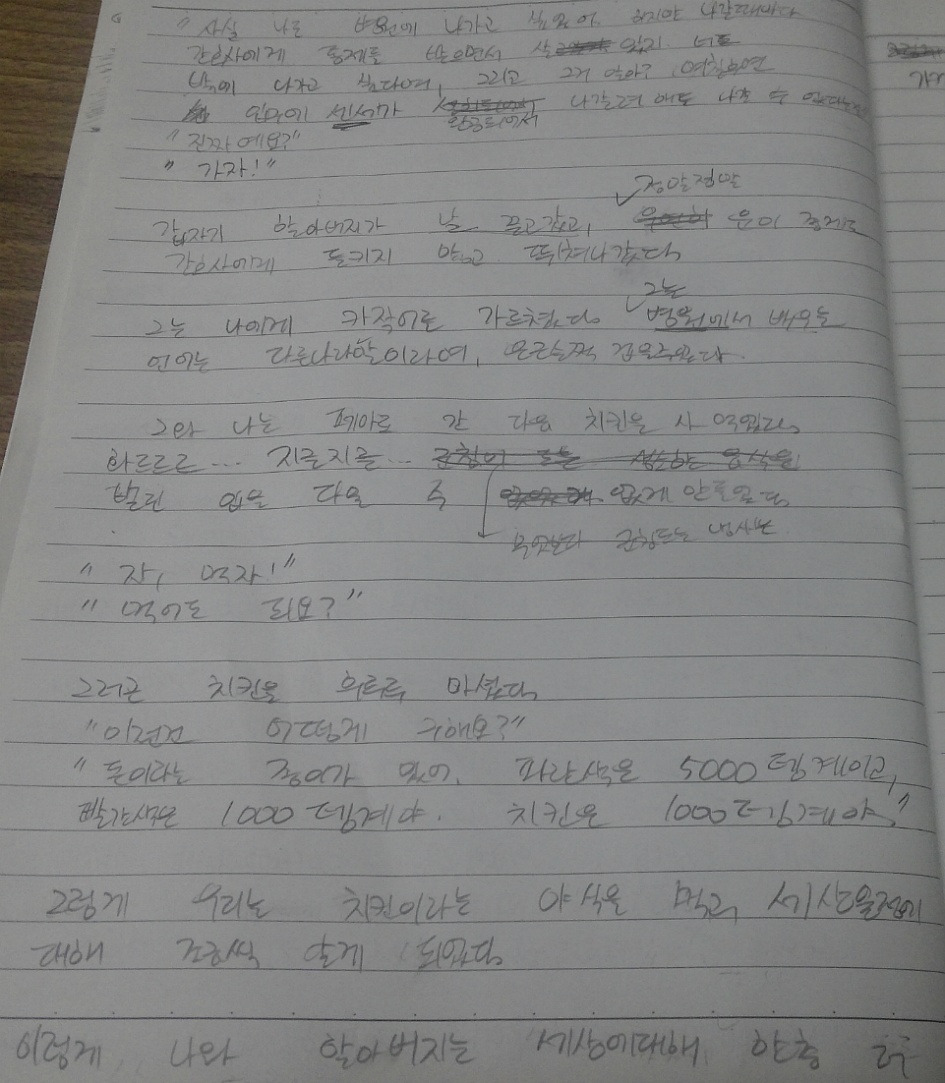 "사실 나는 병원에 나가고 싶었어. 하지만 나갈때마다
간호사에게 통제를 받으면서 살 있지. 너도
밖에 나가고 싶다며, 그리고 그거 알아? 며칠후면
센서가 완공되어서 나갈려 해도 나갈 수
"진짜에요?"
"가자!"
갑자기 할아버지가 날 끌고갔고, 정말정말 운이 좋게도
간호사에게 들키지 않고 뛰쳐나갔다
그는 나에게 카작어를 가르쳤다 그는 병원에서 배우는
언어는 다른나라말이라며, 은근슬쩍 겁을주었다.
그와 나는 카페로 간 다음 치킨을 사 먹었다
화르르르... 지글지글...
벌린 입을 다물 수 없게 만들었다
무엇보다 군침도는 냄새는
"자, 먹자!"
"먹어도 되요?"
그러곤 치킨을 후루룩 마셨다
"이런건 어떻게 구해요?"
"돈이라는 종이가 있어. 파란색은 5000텡게이고,
빨간색은 1000텡게야. 치킨은 1000텡게야."
그렇게 우리는 치킨이라는 야식을 먹고, 세상물정에
대해 조금씩 알게 되었다
이렇게 나와 할아버지는 세상에대해 한층 더